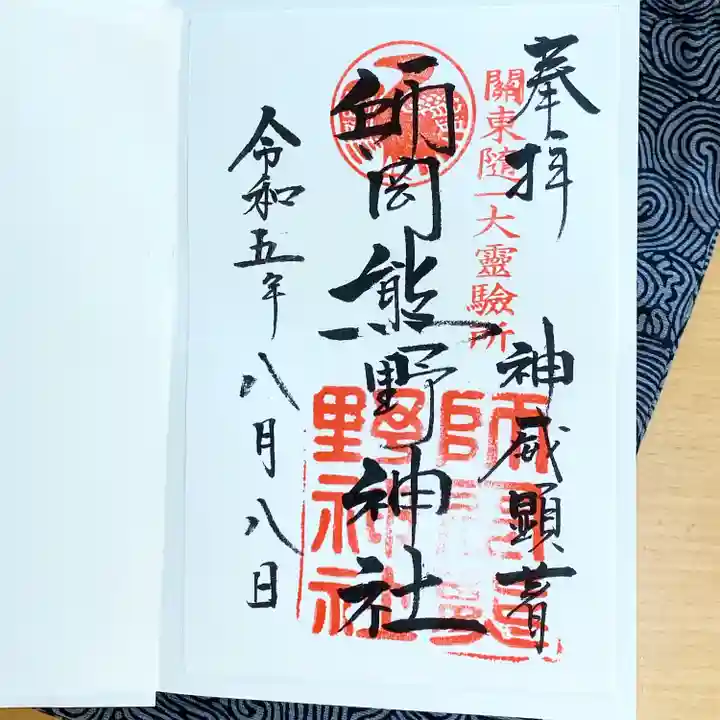 奉拝
神威顕著
關東隨一大靈驗所
師岡熊野神社
師岡熊野神社
令和五年八月八日